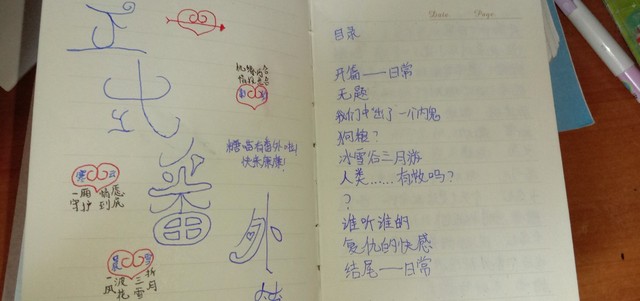 正
式
番
外
有番外啦!
快来康康!
一厢情愿
守护到底
一波三折
风花雪月
Date Page
目录
开篇——日常
无题
我们中出了一个内鬼
狗粮?
冰雪谷三月游
人类……有救吗?
?
谁听谁的
复仇的快感
结尾——日常